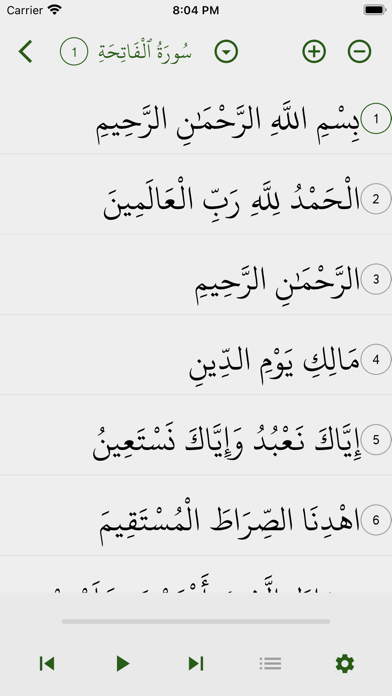 Carrier 8:04 PM
سُورَةُ ٱلْفَاتِحَةِ 1
بِسْمِ اللَّهِ الرَّحْمَٰنِ الرَّحِيمِ 1
الْحَمْدُ لِلَّهِ رَبِّ الْعَالَمِينَ 2
الرَّحْمَٰنِ الرَّحِيمِ 3
مَالِكِ يَوْمِ الدِّينِ 4
إِيَّاكَ نَعْبُدُ وَإِيَّاكَ نَسْتَعِينُ 5
اهْدِنَا الصِّرَاطَ الْمُسْتَقِيمَ 6